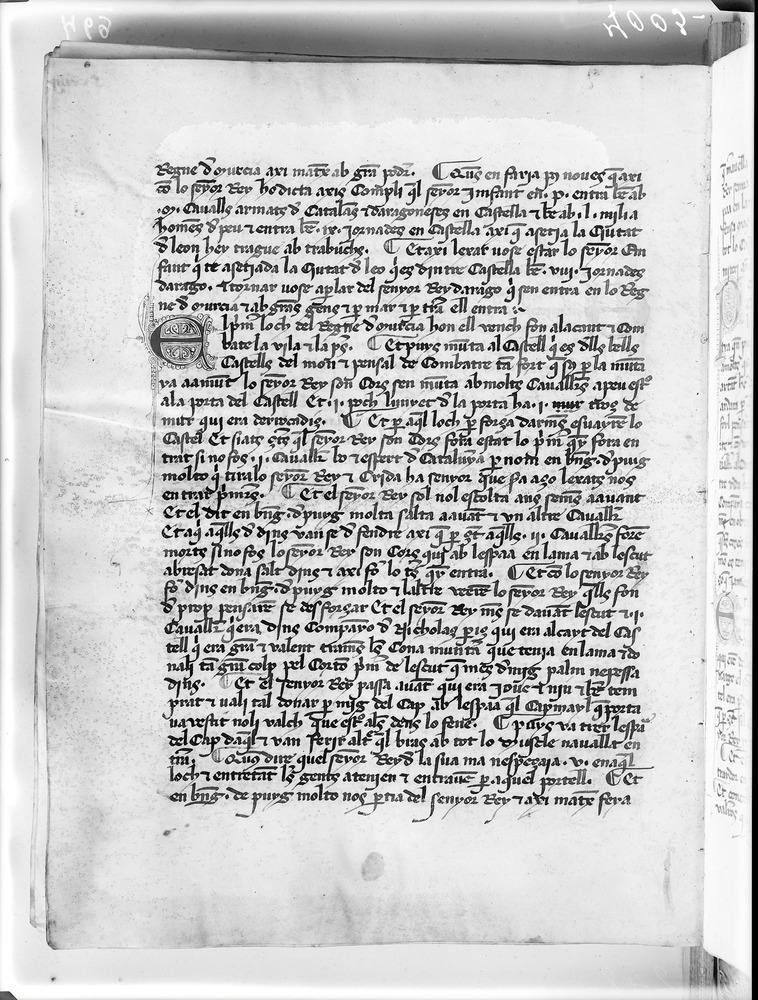 Regne d murcia axi mateix ab gra podr. Queus en faria pus noves q axi
co lo senyor Rey ho dicta axis Compli ql senyor Infant en .P. entra be ab
.M. Cavalls armats d Catalas & daragoneses en Castella & be ab .L. milia
homens d peu & entra be .ix. jornades en Castella axi q asetia la Ciutat
d leon hey trague ab trabuchs. Et axi lexar vose estar lo senyor En
fant q te asetiada la Ciutat d leo q es dintre Castella be .viii. jornades
darago. & tornar vose a plar del senyor Rey darago q sen entra en lo Reg
ne d murcia & ab grans gens & p mar & p tra ell entra
El pm loch del Regne d murcia hon ell vench fon alacant & Com
bate la vila & la ps. Et puys munta al Castell q es dls bells
Castells del mon & pensal de Combatre ta fort q sus p la munta
ya aamunt lo senyor Rey son Cors sen munta ab molts Cavallrs a peu
a la porta del Castell Et .i. poch lunyet d la porta ha .i. mur
mur qui era derrocadis. Et p aql loch p forsa darmes esvayre lo
Castel Et siats ql senyor Rey son Cors fora estat lo pm qy fora en
trat si no fos .i. Cavallr lo & espert d Catalunya p nom en bng. d puig
molto q tira lo senyor Rey & Crida ha senyor que fa aço lexats nos
entrar pmers. Et el senyor Rey sol nol escolta ans avant
Et el dit en bng. d puyg molto salta avat & un altre Cavallr
Et aq aqlls d dins van se d fendre axi q p aqlls .ii. Cavallrs foren
morts si no fos lo senyor Rey son Cors qui ab lespaa en la ma & ab lescut
abrasat dona salt dins & axi fo lo qy entra. Et co lo senyor Rey
fo dins en bng. d puyg molto & laltre veeren lo senyor Rey qlls fon
d prop pensare se desforsar Et el senyor Rey mes se davant lescut & .i.
Cavallr q era dins Companyo d Nicholas pis qui era alcayt del Cas
tell q era gra & valent Cona muntra que tenia en la ma & do
nali ta gran colp pel Corto pm de lescut q mes d mig palm ne passa
dins. Et el Senyor Rey passa avat qui era jove & niu & be tem
prat & vali tal donar p mig del Cap ab lespaa ql Capmayl q porta
va vestit noli valch que dens lo fene. Puys va tirer lespaa
del Cap daql & van ferir altr ql bras ab tot lo muscle na vallat en
tra. Queus dire quel senyor Rey d la sua ma nespegaja .v. en aql
loch & entretant ls gents atenyen & entrave p aquel portell. Et
en bng. de puyg molto nos ptia del senyor Rey & axi mateix fera